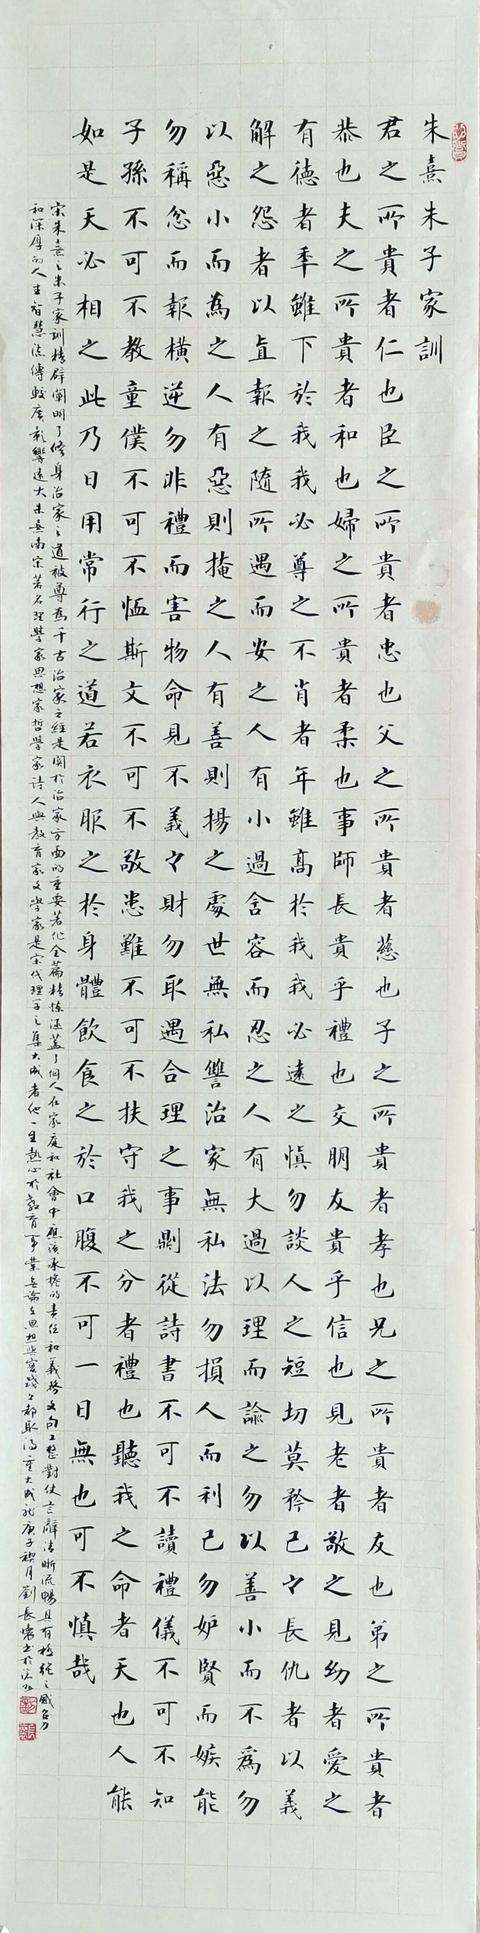 朱熹朱子家訓
君之所貴者仁也臣之所貴者忠也父之所貴者慈也子之所貴者孝也兄之所貴者友也弟之所貴者
恭也夫之所貴者和也婦之所貴者柔也事師長貴乎禮也交朋友貴乎信也見老者敬之見幼者愛之
有德者年雖下於我我必尊之不肖者年雖高於我我必遠之慎勿談人之短切莫矜己々長仇者以義
解之怨者以直報之隨所遇而安之人有小過含容而忍之人有大過以理而諭之勿以善小而不為勿
以惡小而為之人有惡則掩之人有善則揚之處世無私讐治家無私法勿損人而利己勿妒賢而嫉能
勿稱忿而報橫逆勿非禮而害物命見不義々財勿取遇合理之事則從詩書不可不讀禮儀不可不知
子孫不可不教童僕不可不恤斯文不可不敬患難不可不扶守我之分者禮也聽我之命者天也人能
如是天必相之此乃日用常行之道若衣服之於身體飲食之於口腹不可一日無也可不慎哉
宋朱熹之朱子家訓精辟闡明了修身治家之道被尊為千古治家之經是関於治家方面的重要著作全篇精煉涵蓋了個人在家庭和社會中應該承擔的責任和義務文句工整對仗言辭清晰流暢具有極強之感召力
和深厚的人生智慧流傳較廣影響遠大朱熹南宋著名理學家思想家哲學家詩人與教育家文學家是宋代理學之集大成者他一生熱心於教育事業無論在思想與實踐上都取得重大成就庚子桉月劉長懷書於